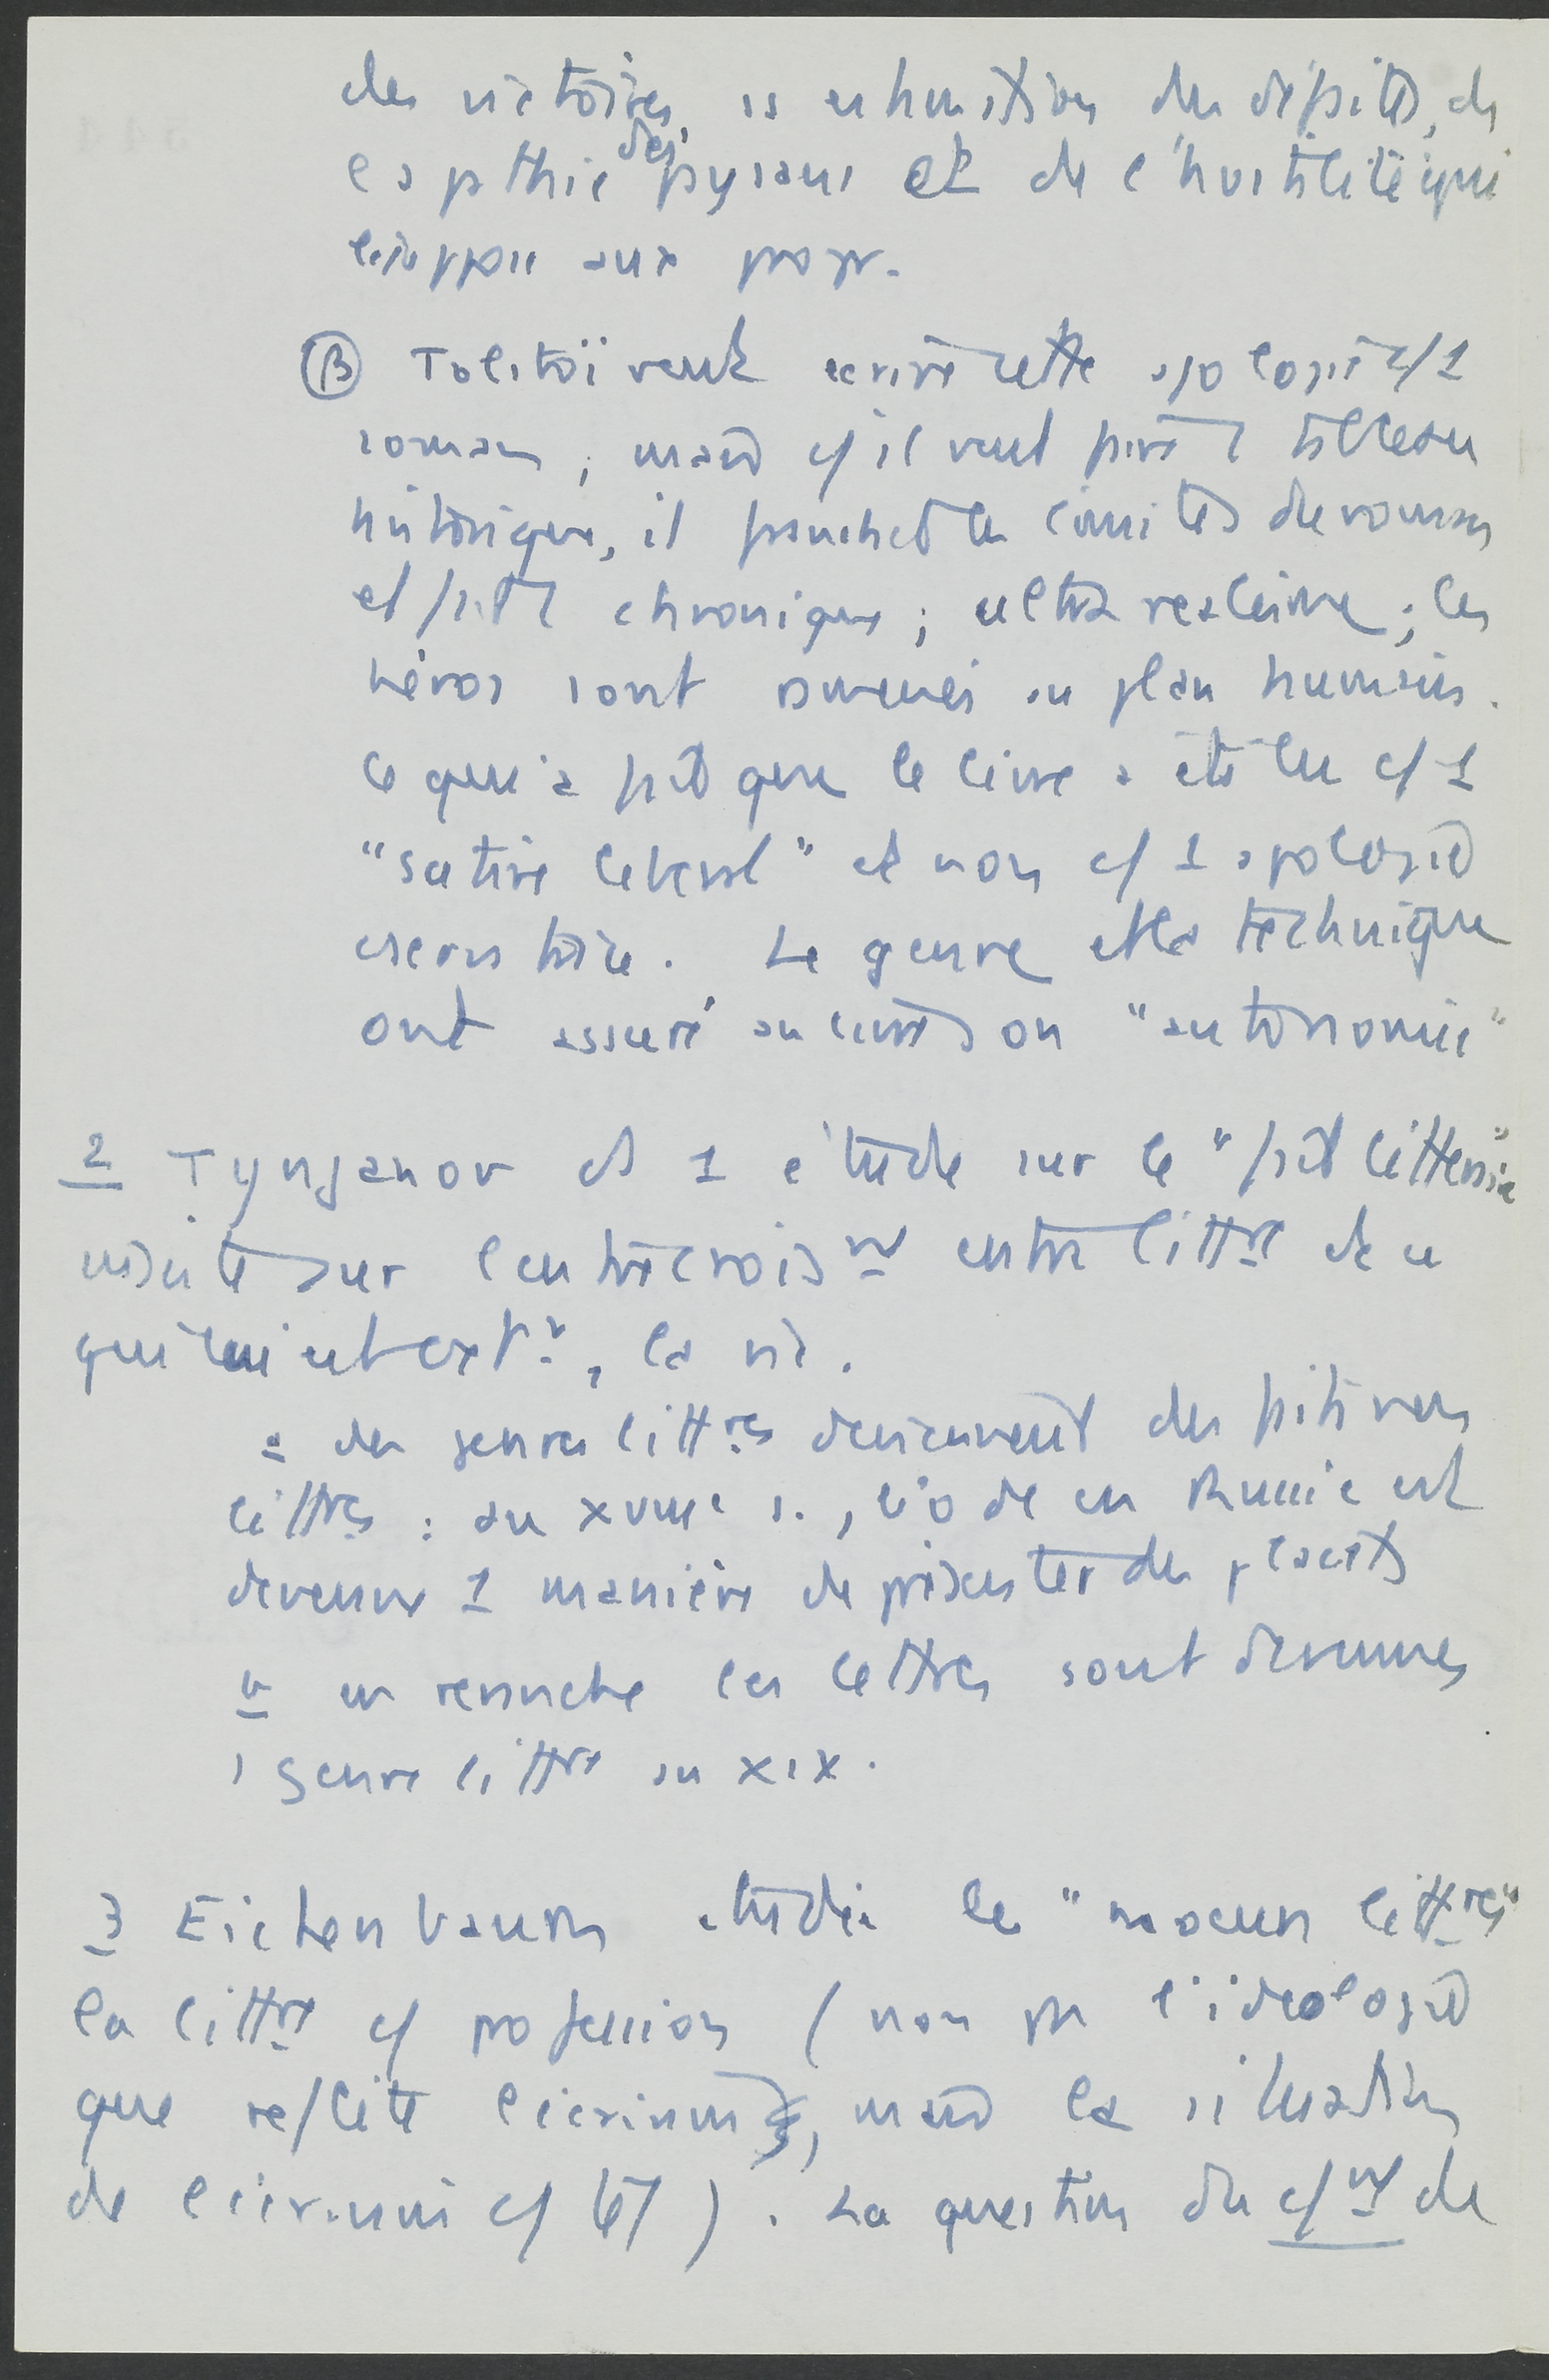 des victoires, ss exhortation des dépités, de
l'apathie des paysans et de l'hostilité qui
l'oppose aux progr.
(β) Tolstoï veut écrire cette apologie c/ 1
roman ; mais c/ il veut faire 1 tableau
historique, il franchit les limites du roman
et fait 1 chronique ; ultra réalisme ; les
héros sont ramenés au plan humain.
Ce qui a fait que le livre a été lu c/ 1
"satire libérale" et non c/ 1 apologie
Le genre et la technique
ont assuré au livre son "autonomie"
2 Tynjanov ds 1 étude sur le "fait littéraire"
insiste sur l'entrecroisnt entre littre et ce
qui lui est extr, la vie.
a des genres littres deviennent des faits non
littres : au XVIIIe s., l'ode en Russie est
devenue 1 manière de présenter des placets
b en revanche les lettres sont devenues
1 genre littre au XIX.
3 Eichenbaum étudie les "moeurs littres"
la littre c/ profession (non pas l'idéologie
que reflète l'écrivain, mais la situation
de l'écrivain c/ tel). La question du c/nt de